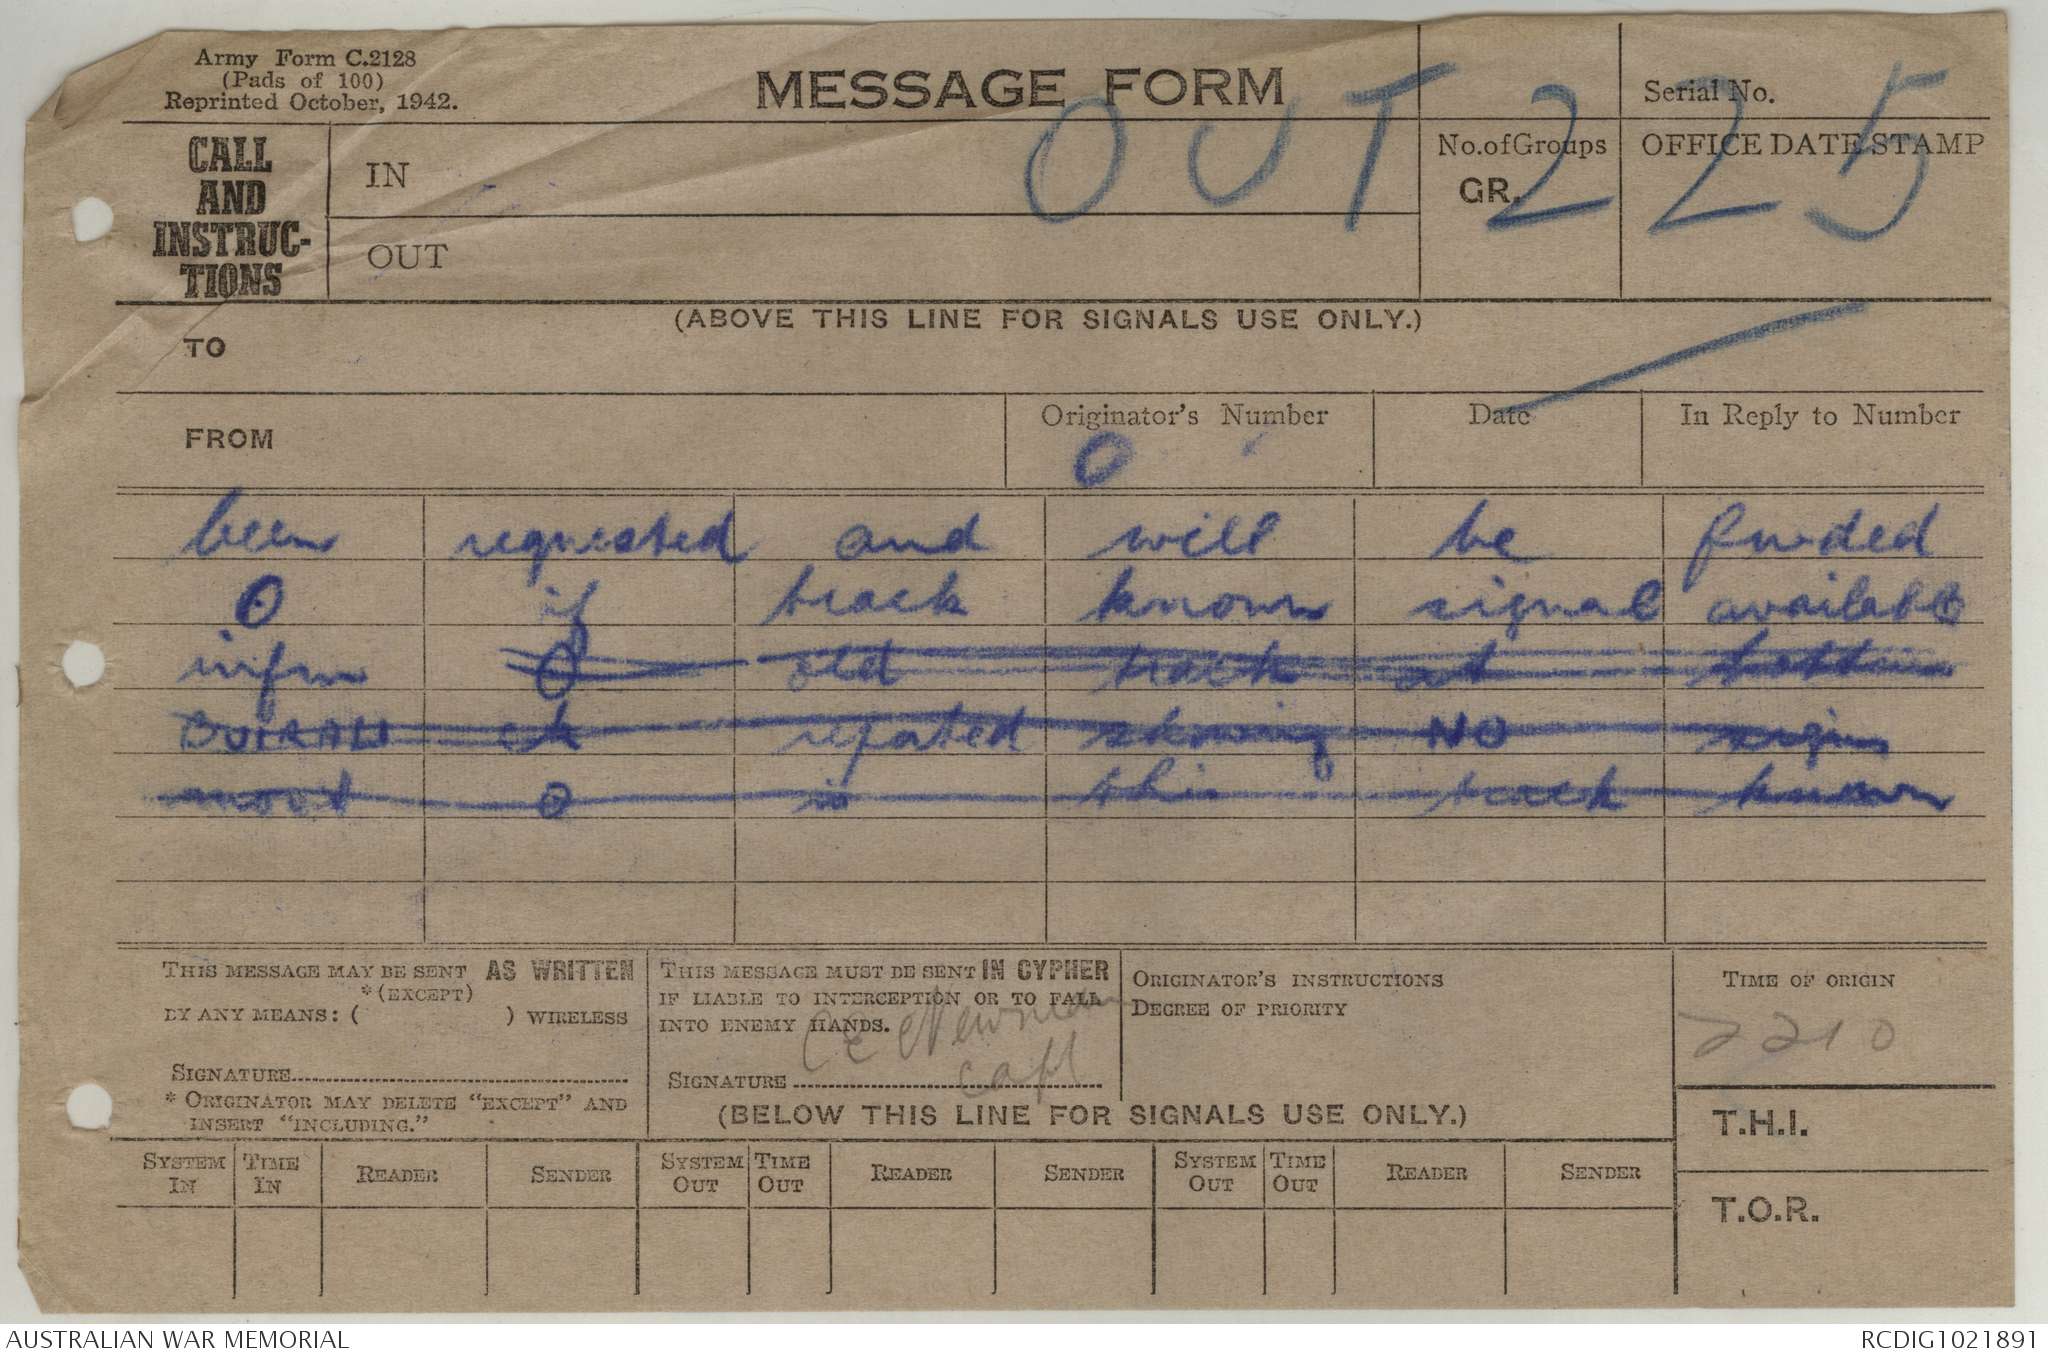 Army Form C.2128
(Pads of 100)
Reprinted October, 1942.
MESSAGE FORM
OUT 225
Serial No.
CALL
AND
INSTRUC-
TIONS
IN
OUT
No. of Groups
GR.
OFFICE DATE STAMP
(ABOVE THIS LINE FOR SIGNALS USE ONLY.)
TO
FROM
Originator's Number
O
Date
In Reply to Number
been requested and will be fwded
O if track known signal available
infm O old track at
ck reported showing NO signs
O is this track known
THIS MESSAGE MAY BE SENT AS WRITTEN
*(EXCEPT)
BY ANY MEANS: ( ) WIRELESS
SIGNATURE
* ORIGINATOR MAY DELETE "EXCEPT" AND
INSERT "INCLUDING."
THIS MESSAGE MUST BE SENT IN CYPHER
IF LIABLE TO INTERCEPTION OR TO FALL
INTO ENEMY HANDS.
Newman
Capt
SIGNATURE
ORIGINATOR'S INSTRUCTIONS
DEGREE OF PRIORITY
TIME OF ORIGIN
2210
(BELOW THIS LINE FOR SIGNALS USE ONLY.)
T.H.I.
T.O.R.
SYSTEM IN TIME IN READER SENDER SYSTEM OUT TIME OUT READER SENDER SYSTEM OUT TIME OUT READER SENDER
AUSTRALIAN WAR MEMORIAL
RCDIG1021891